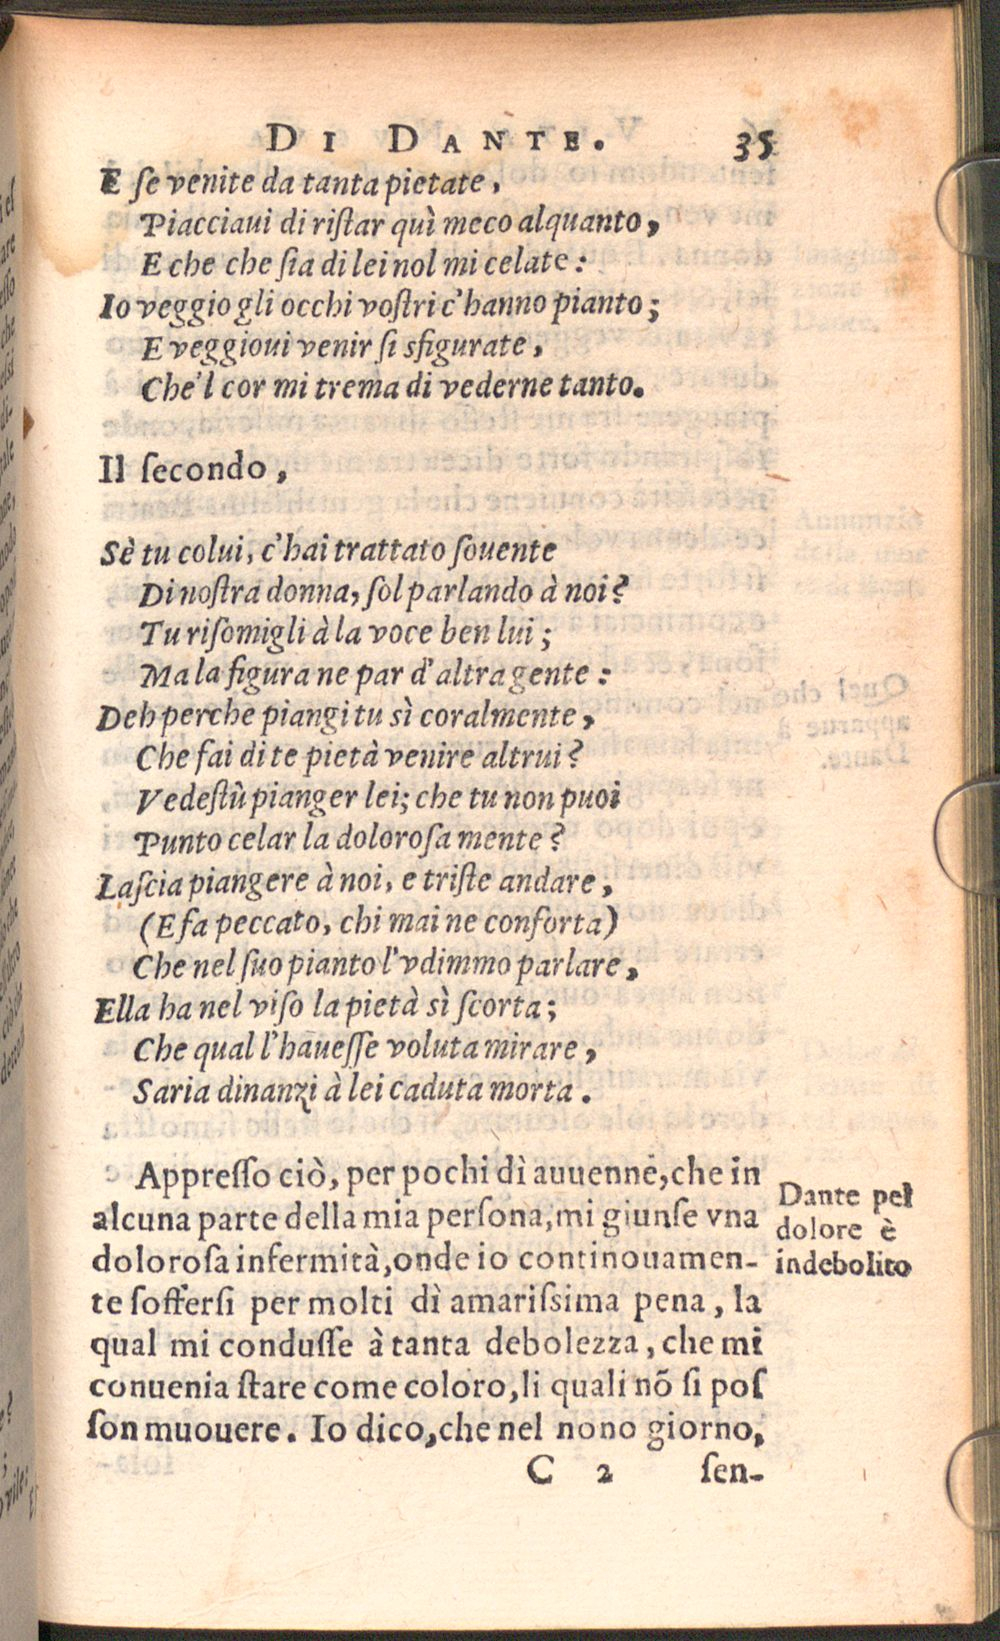 DI DANTE. 35
E ſe venite da tanta pietate,
Piacciaui di riſtar quì meco alquanto,
E che che ſia di lei nol mi celate:
Io veggio gli occhi voſtri c'hanno pianto;
E veggioui venir ſi sfigurate,
Che'l cor mi trema di vederne tanto.
Il ſecondo,
Sè tu colui, c'hai trattato ſouente
Di noſtra donna, ſol parlando à noi?
Tu riſomigli à la voce ben lui;
Ma la figura ne par d'altra gente:
Deh perche piangi tu sì coralmente,
Che fai di te pietà venire altrui?
Vedeſtù pianger lei; che tu non puoi
Punto celar la doloroſa mente?
Laſcia piangere à noi, e triſte andare,
(E fa peccato, chi mai ne conforta)
Che nel ſuo pianto l'vdimmo parlare,
Ella ha nel viſo la pietà sì ſcorta;
Che qual l'haueſſe voluta mirare,
Saria dinanzi à lei caduta morta.
Appreſſo ciò, per pochi dì auuenne, che in
alcuna parte della mia perſona, mi giunſe vna
doloroſa infermità, onde io continouamen-
te ſofferſi per molti dì amariſsima pena, la
qual mi conduſſe à tanta debolezza, che mi
conuenia ſtare come coloro, li quali nõ ſi poſ
ſon muouere. Io dico, che nel nono giorno,
Dante pel
dolore è
indebolito
C 2 ſen-